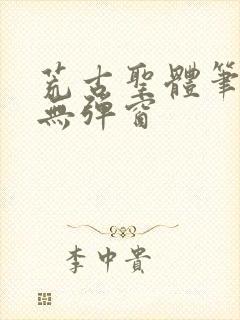 荒古聖體筆
無彈窗
李中貴